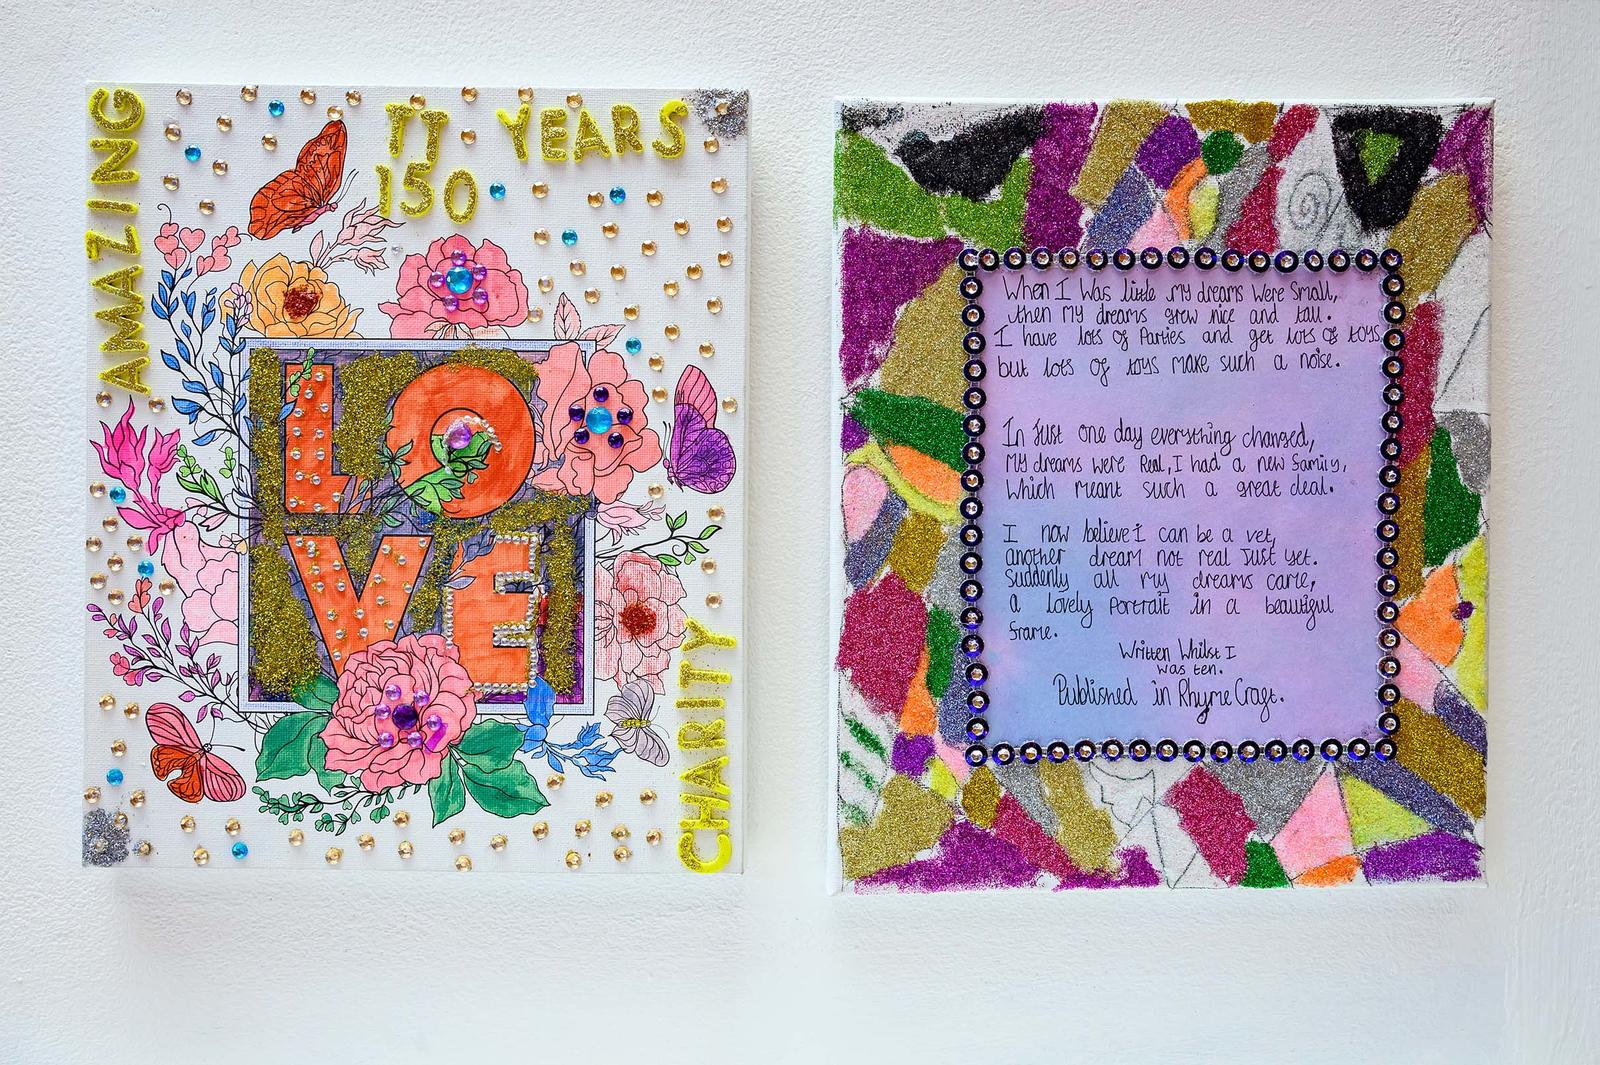 AMAZING
TJ YEARS
150
LOVE
CHARITY
When I Was little my dreams were small,
then my dreams grew nice and tall.
I have lots of Parties and get lots of toys
but lots of toys make such a noise.
In just one day everything changed,
my dreams were Real, I had a new family,
Which meant such a great deal.
I now believe I can be a vet,
another dream not real just yet.
Suddenly all my dreams came,
a lovely portrait in a beautiful
frame.
Written Whilst I
was ten.
Published in Rhyme Craft.